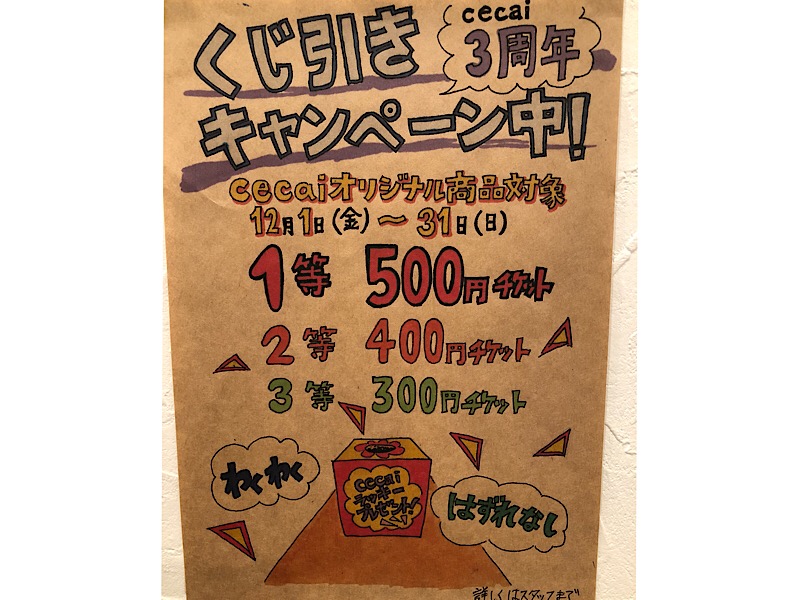 くじ引き
cecai
3周年
キャンペーン中!
cecaiオリジナル商品対象
12月1日(金)〜31日(日)
1等 500円チケット
2等 400円チケット
3等 300円チケット
わくわく
cecai
ラッキー
プレゼント!
はずれなし
詳しくはスタッフまで